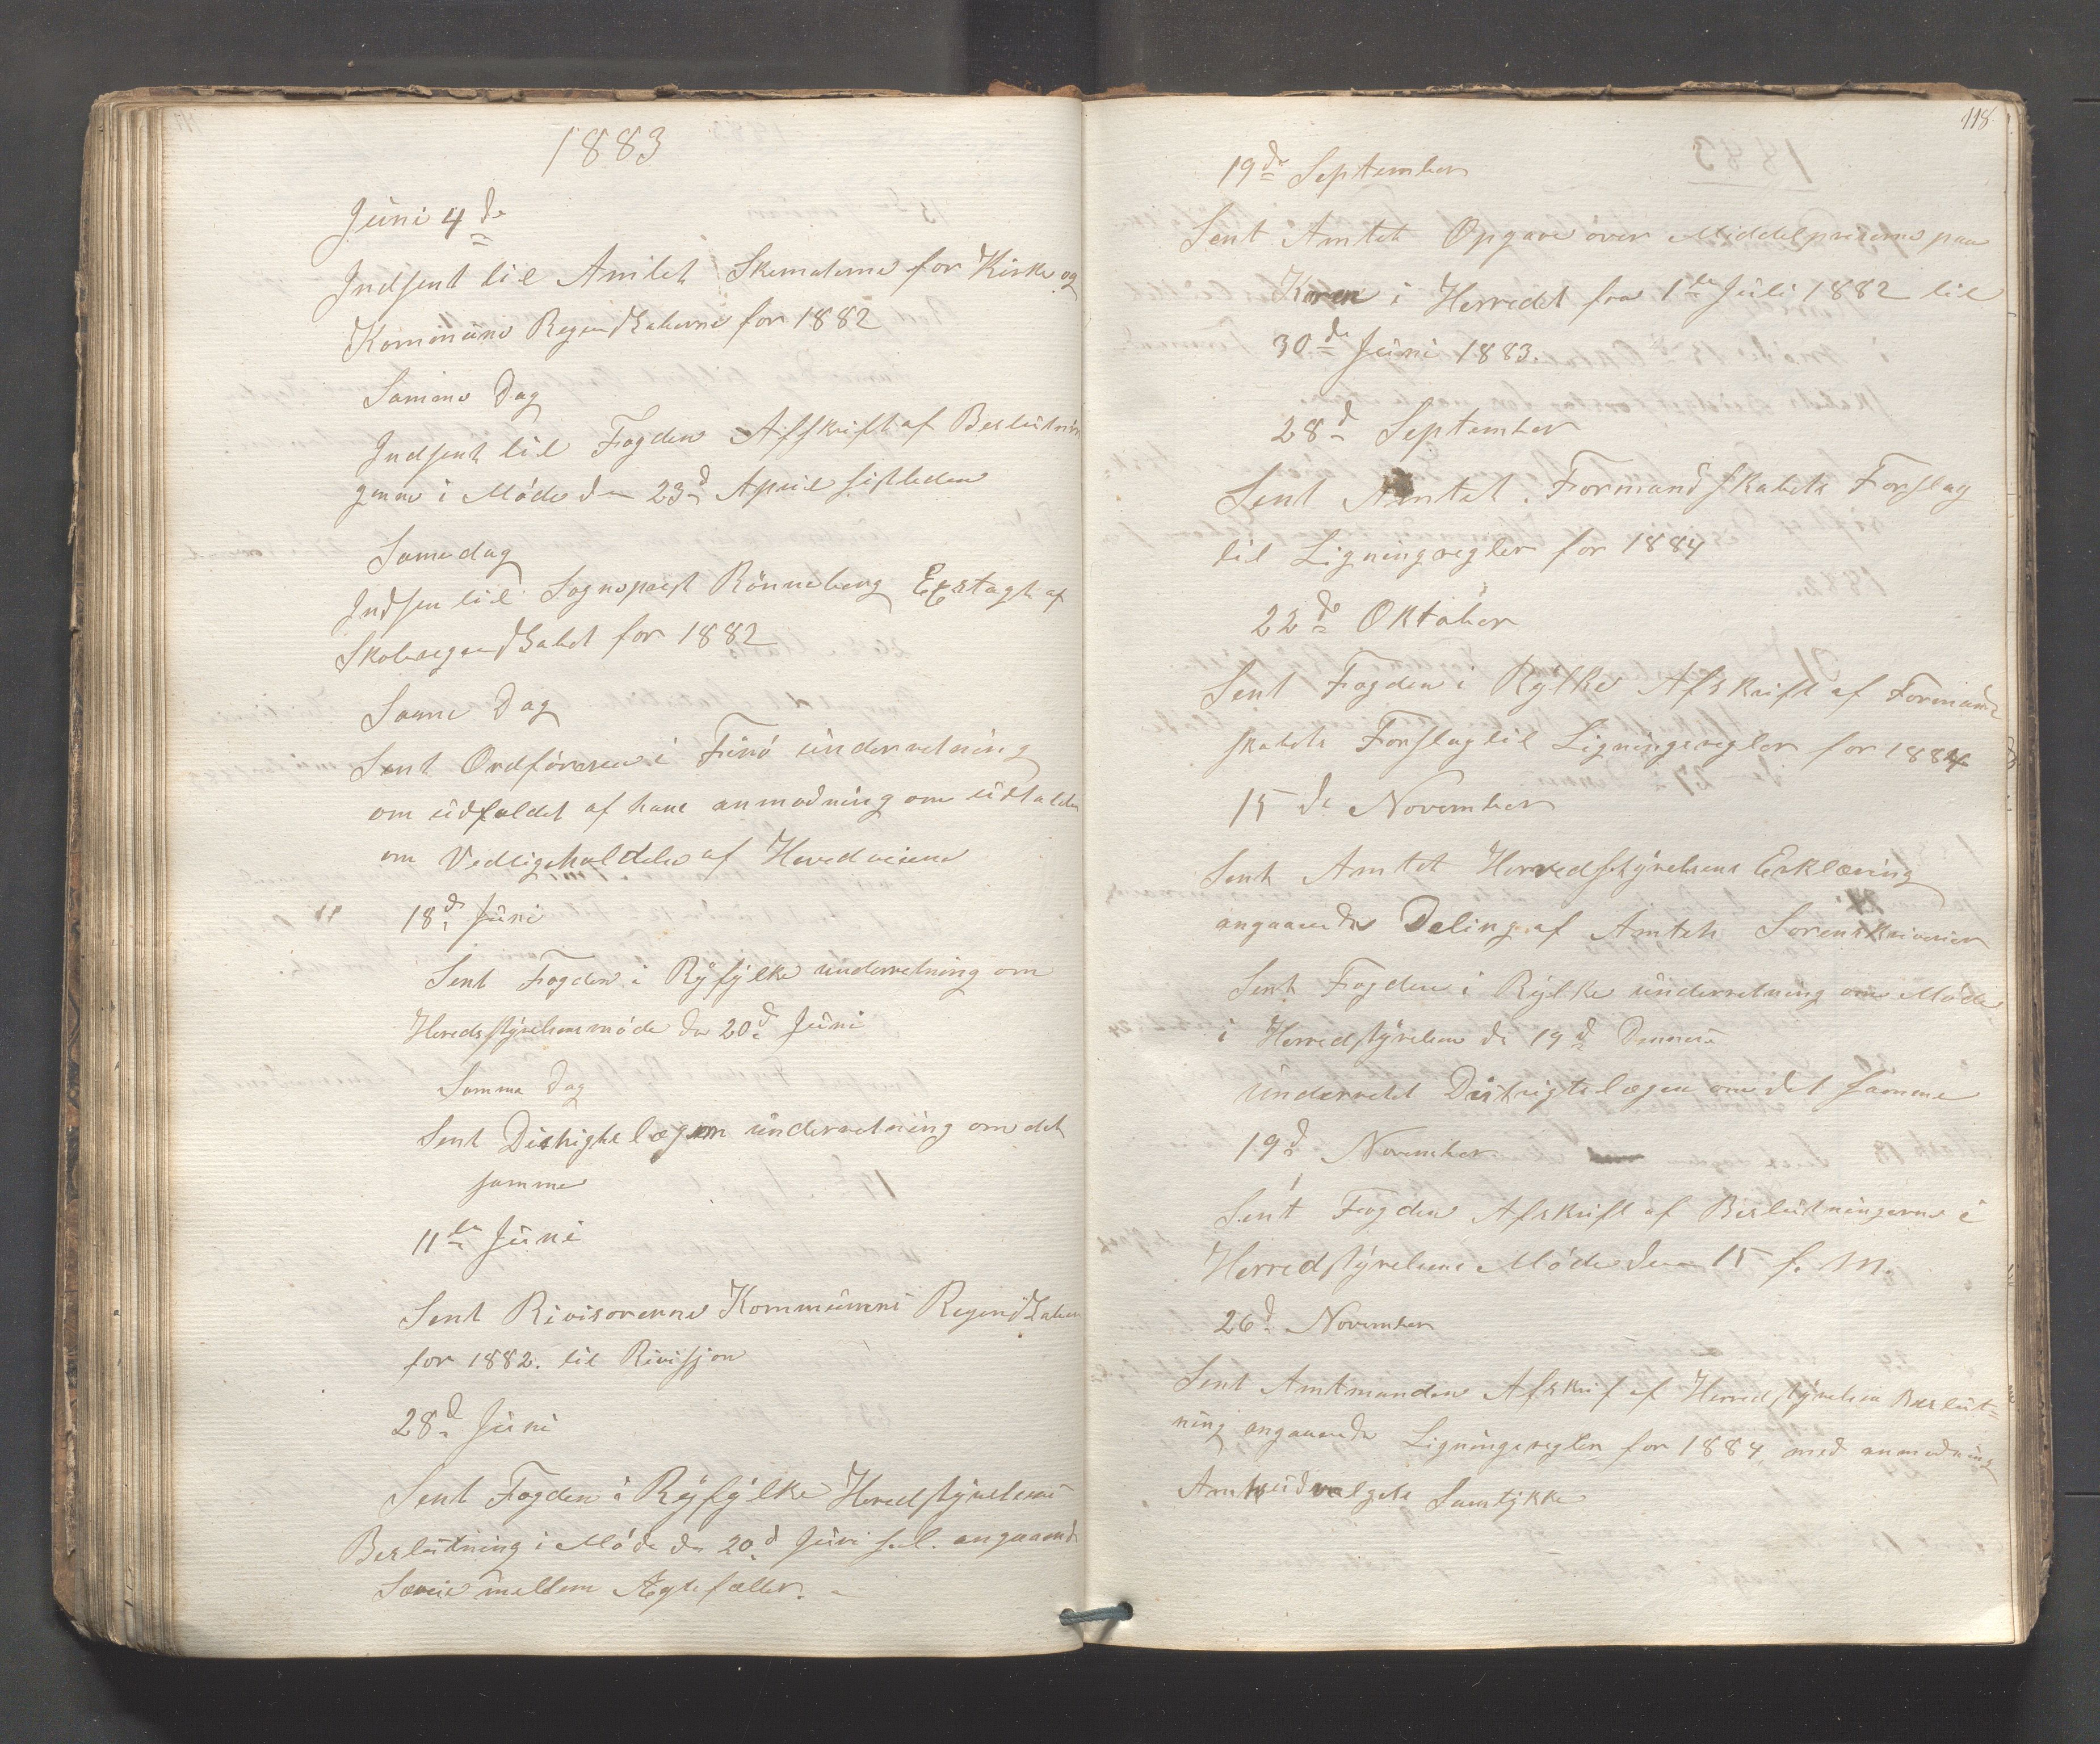 1883
Juni 4de
Indsent til Amtet Skematerne for Kirke og
Kommune Regendskaberne for 1882
Samme Dag
Indsent til Fogden Afskrift af Beslutnin
gerne i Møde den 23d April sistleden
Samedag
Indsen til Sognepræst Rönneberg Extragt af
Skoleregendskabet for 1882
Samme Dag
Sent Ordføreren i Finø underretning
om udfaldet af hans anmodning om udtalelse
om Vedligeholdelse af Hovedveiene
18de Juni
Sent Fogden i Ryfylke underretning om
Heredsstyrelsesmøde den 20d Juni
Samme Dag
Sent Distrigtslægen underretning om det
samme
11te Juni
Sent Rivisorerne Kommunens Regendskaber
for 1882. til Rivisjon
28d Juni
Sent Fogden i Ryfylke Heredstyrelsens
Beslutning i Møde den 20d Juni s.l. angaaende
Særeie mellem Ægtefæller.
118
19de September
Sent Amtet Opgave over Middelpriserne paa
Koren i Herredet fra 1te Juli 1882 til
30de Juni 1883.
28d September
Sent Amtet Formandskabets Forslag
til Ligningsregler for 1884
22de Oktober
Sent Fogden i Rylke Afskrift af Formand
skabets Forslag til Ligningsregler for 1884
15de November
Sent Amtet Herredsstyrelsens Erklæring
angaaende Deling af Amtets Sorenskriverier
Sent Fogden i Rylke underretning om Møde
i Herredstyrelsen de 19d Dennes
Underrettet Distrigtslægen om det samme
19d November
Sent Fogden Afskrift af Beslutningerne i
Herredstyrelsens Møde den 15 f. M.
26d November
Sent Amtmanden Afskrif af Herredstyrelsen Beslut=
ning angaaende Ligningsregler for 1884, med anmodning
Amtsudvalgets Samtykke